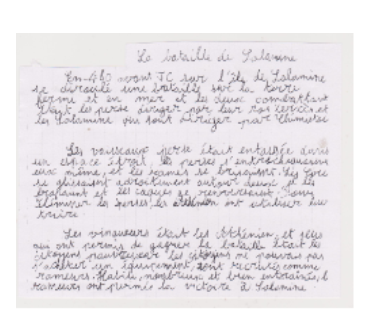 La bataille de Salamine
En -480 avant JC sur l'île de Salamine
se déroule une bataille sur la terre
ferme et en mer et les deux combattant
sont les perse diriger par leur roi Xerxès et
les Salamine qui sont diriger par
Les vaisseaux perse était entassée dans
un espace étroit, les perses s'entrechoquaient
eux même, et les rames se brisaient. Les Grec
se glissaient adroitement autour deux, et les
et les coques se renversaient. Pour
éliminer les perses, les athénien ont utiliser leur
trière
Les vinqueurs était les Athénien, et ceux
qui ont permis de gagner la bataille était les
citoyens pauvres, car les citoyens ne pouvais pas
s'acheter un équipement, sont recrutés comme
rameurs. Habile, nombreux et bien entraînés,
rameurs ont permis la victoire à Salamine.